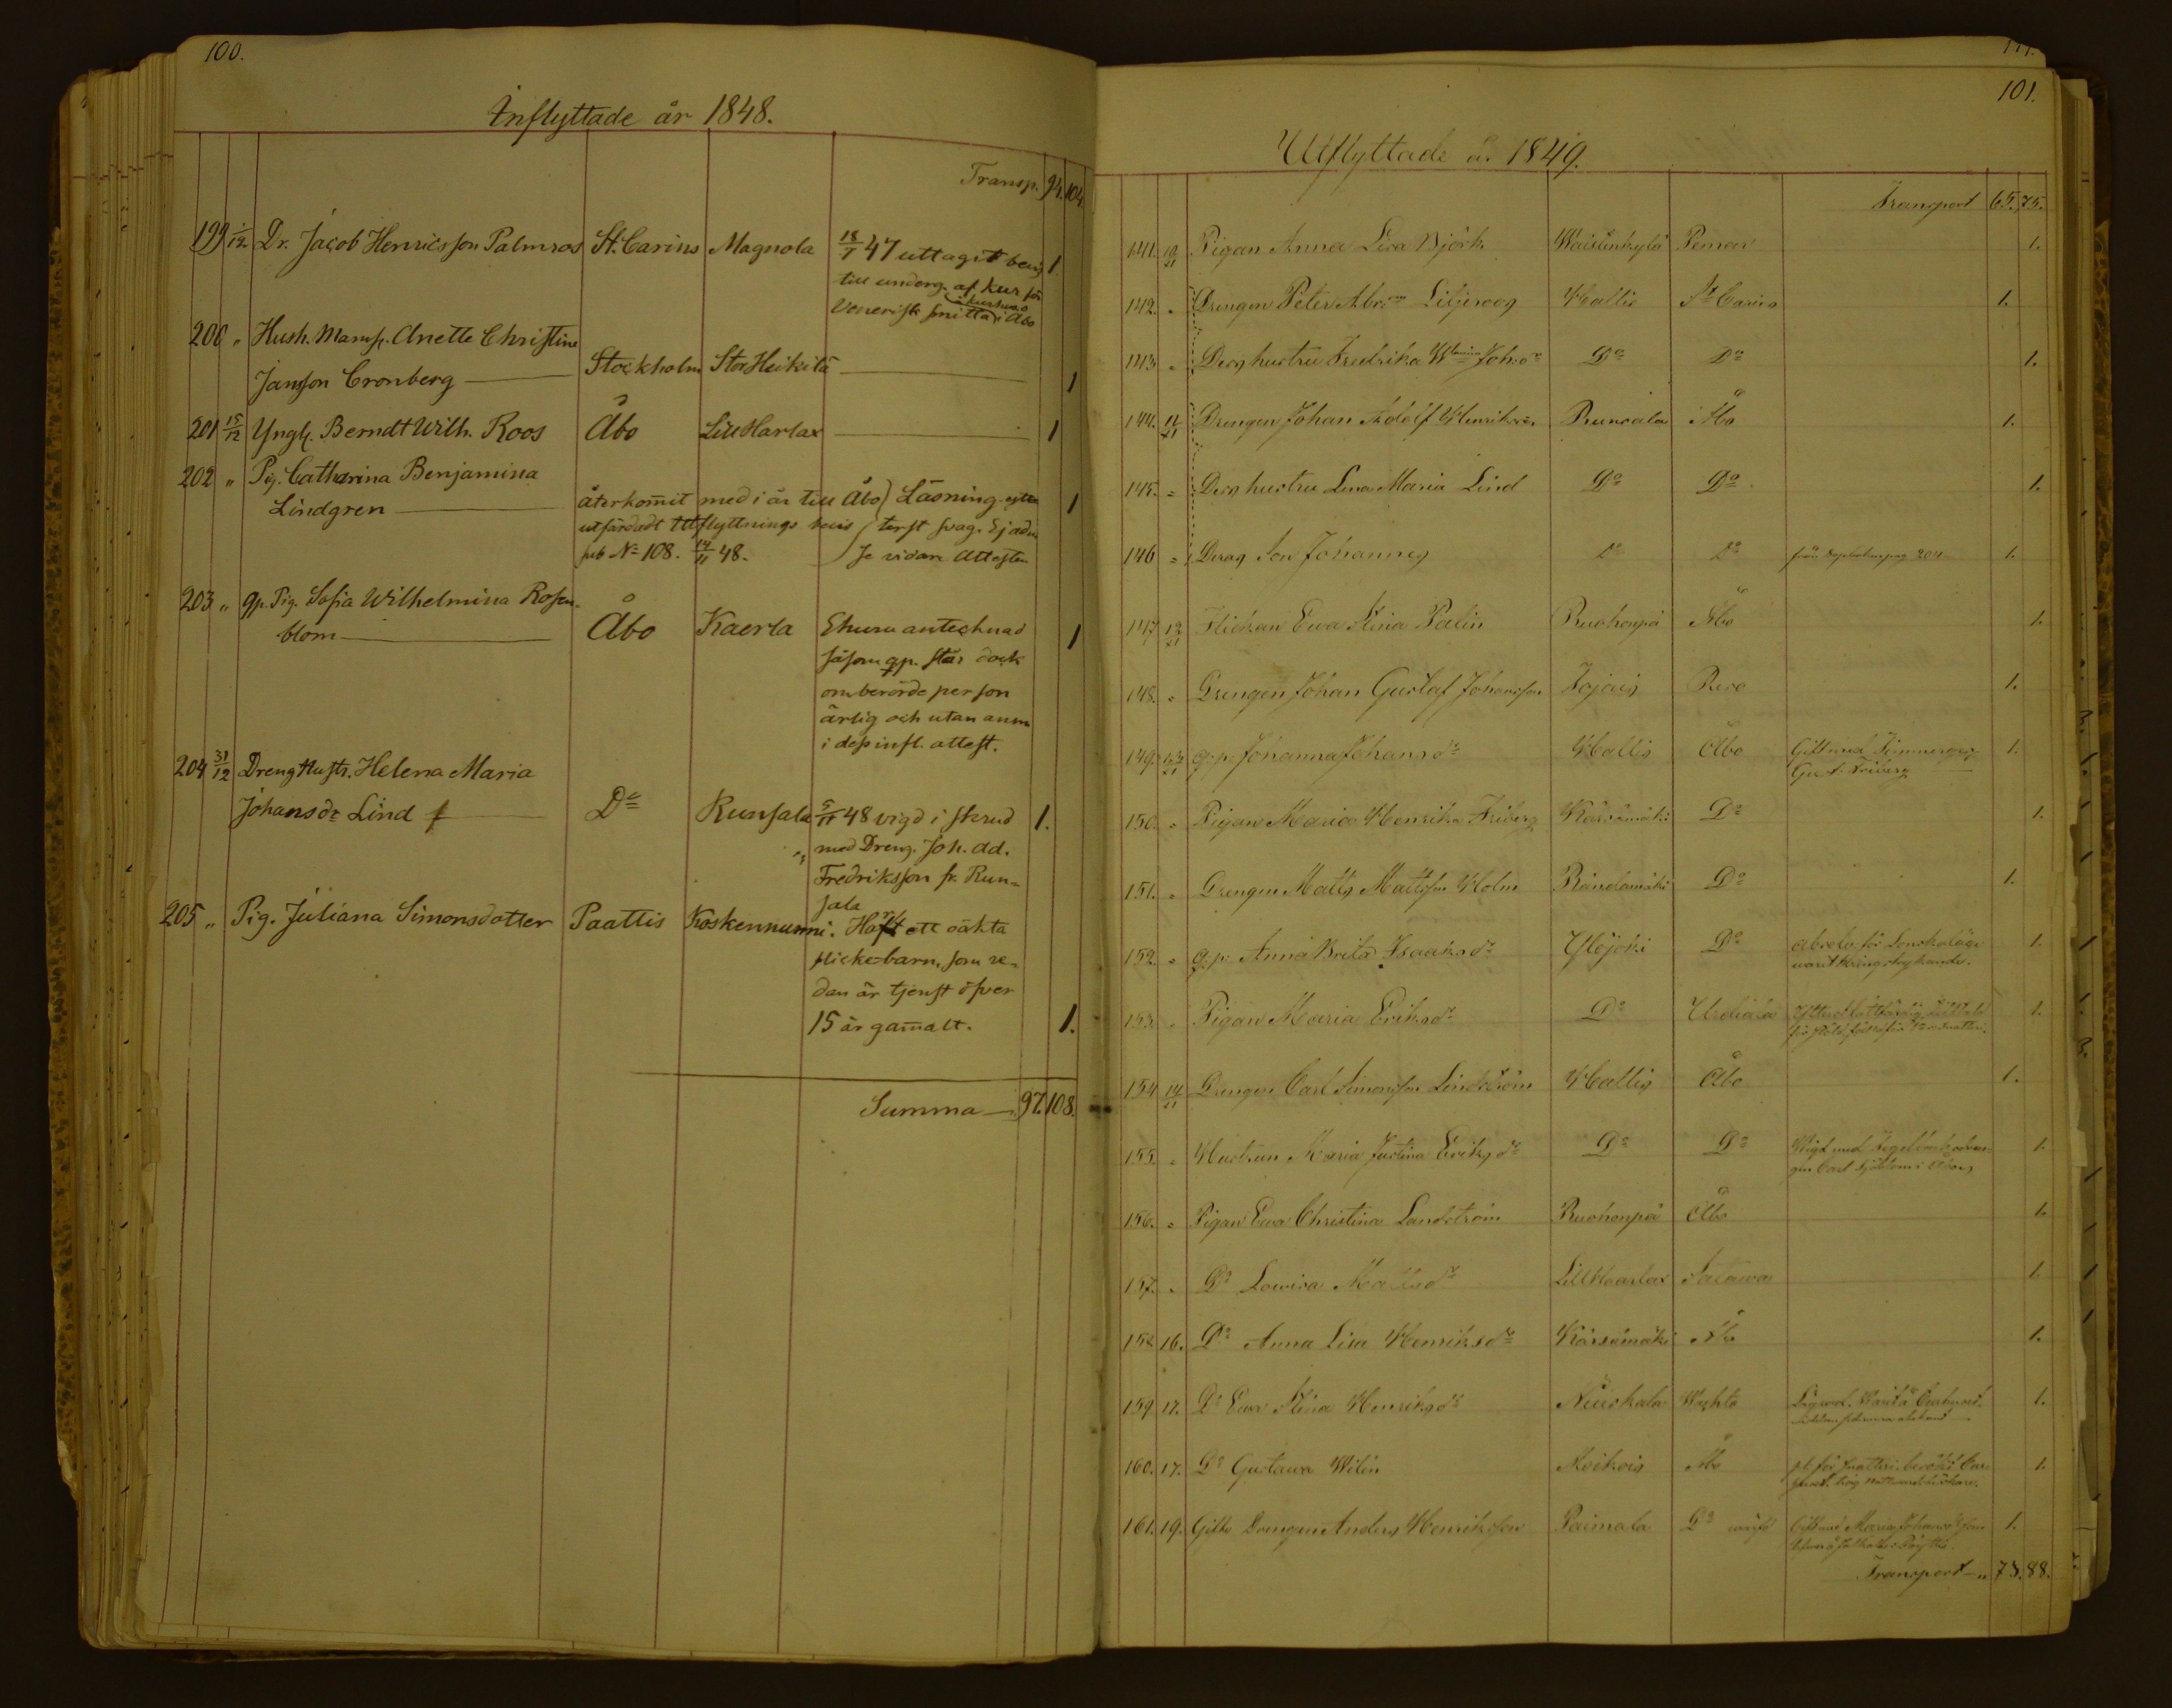 100.
Inflyttade år 1848.
Transp. 94. 104
199 1/12 Dr. Jacob Henricsson Palmros St. Carins Magnola 18/7 47 uttagit bevis 1
till underg. af Kur för
Venerisk smitta i kurhus i Åbo
200 " Hush. Mamsl. Anette Christine
Jansson Cronberg Stockholm Stor Heikilä 1
201 15/12 Yngl. Berndt Wilh. Roos Åbo Lill Harlax 1
202 " Pig. Catharina Benjamina
Lindgren återkommit med i år till Åbo Läsning ytterst svag. 1
utfärdadt utflyttnings bevis
sub No 108. 14/11 48. Se vidare Attesten
203 " qp. Pig. Sofia Wilhelmina Rosen-
blom Åbo Kaerla Ehuru antecknad 1
såsom qp. står dock
omberörde person
ärlig och utan anm
i dess infl. attest.
204 31/12 Dreng Hustr. Helena Maria
Johansdr Lind Do Runsala 5/11 48 vigd i skrud 1.
med Dreng. Joh. Ad.
Fredriksson fr. Run-
sala
205 " Pig. Juliana Simonsdotter Paattis Koskennummi. Haft ett oäkta
flicke-barn, som re-
dan är tjenst öfver
15 år gamalt. 1.
Summa 97. 108.
101.
Utflyttade år 1849.
Transport 65. 75.
141. 10/21 Pigan Anna Lisa Björk Waistenkylä Pemar 1.
142. " Drengen Peter Abr:son Liljeroos Hallis St Carins 1.
143. " Dess hustru Fredrika Wlmina Joh:dr Do Do 1.
144. 11/21 Drengen Johan Adolf Henriksson Runsala Åbo 1.
145. " Dess hustru Lena Maria Lind Do Do 1.
146 " Deras Son Johannes Do Do 1.
147 12/21 Flickan Ewa Stina Palin Ruohonpä Åbo 1.
148. " Drengen Johan Gustaf Johansson Jojais Reso 1.
149. 13/21 q.p. Johanna Johansdr Hallis Åbo Gift med Timmerges. 1.
Gust. Friberg
150. " Pigan Maria Henrika Friberg Kärsämäki Do 1.
151. " Drengen Matts Mattsson Holm Räntämäki Do 1.
152. " q.p. Anna Brita Isaaksdr Ylijoki Do 1.
varit kringstrykande.
153. " Pigan Maria Eriksdr Do Urdiala 1.
154 14/21 Drengen Carl Simonsson Lindström Hallis Åbo 1.
155. " Hustrun Maria Justina Eriksdr Do Do Wigd med 1.
156. " Pigan Ewa Christina Landström Ruohonpä Åbo 1.
157. " Do Lowisa Mattsdr Lill Haarlax Satawa 1.
158 16. Do Anna Lisa Henriksdr Kärsämäki Åbo 1.
159 17. Do Ewa Stina Henriksdr Niuskala Wahto 1.
160. 17. Do Gustawa Wilén Moikois Åbo 1.
161. 19. Gifte Drengen Anders Henriksson Paimala Do Gift med Maria Johansdr som 1.
Transport 73. 88.